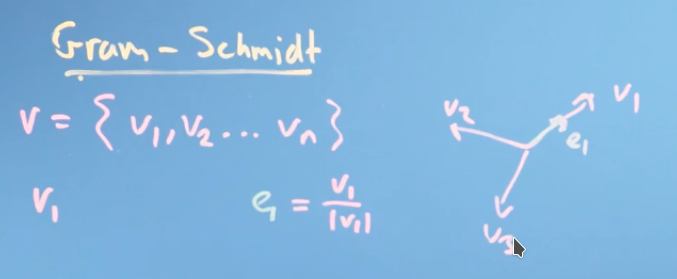 Gram - Schmidt
v = { v₁, v₂ ... vₙ }
v₁
e₁ = v₁ / |v₁|
v₂
v₁
e₁
v₃